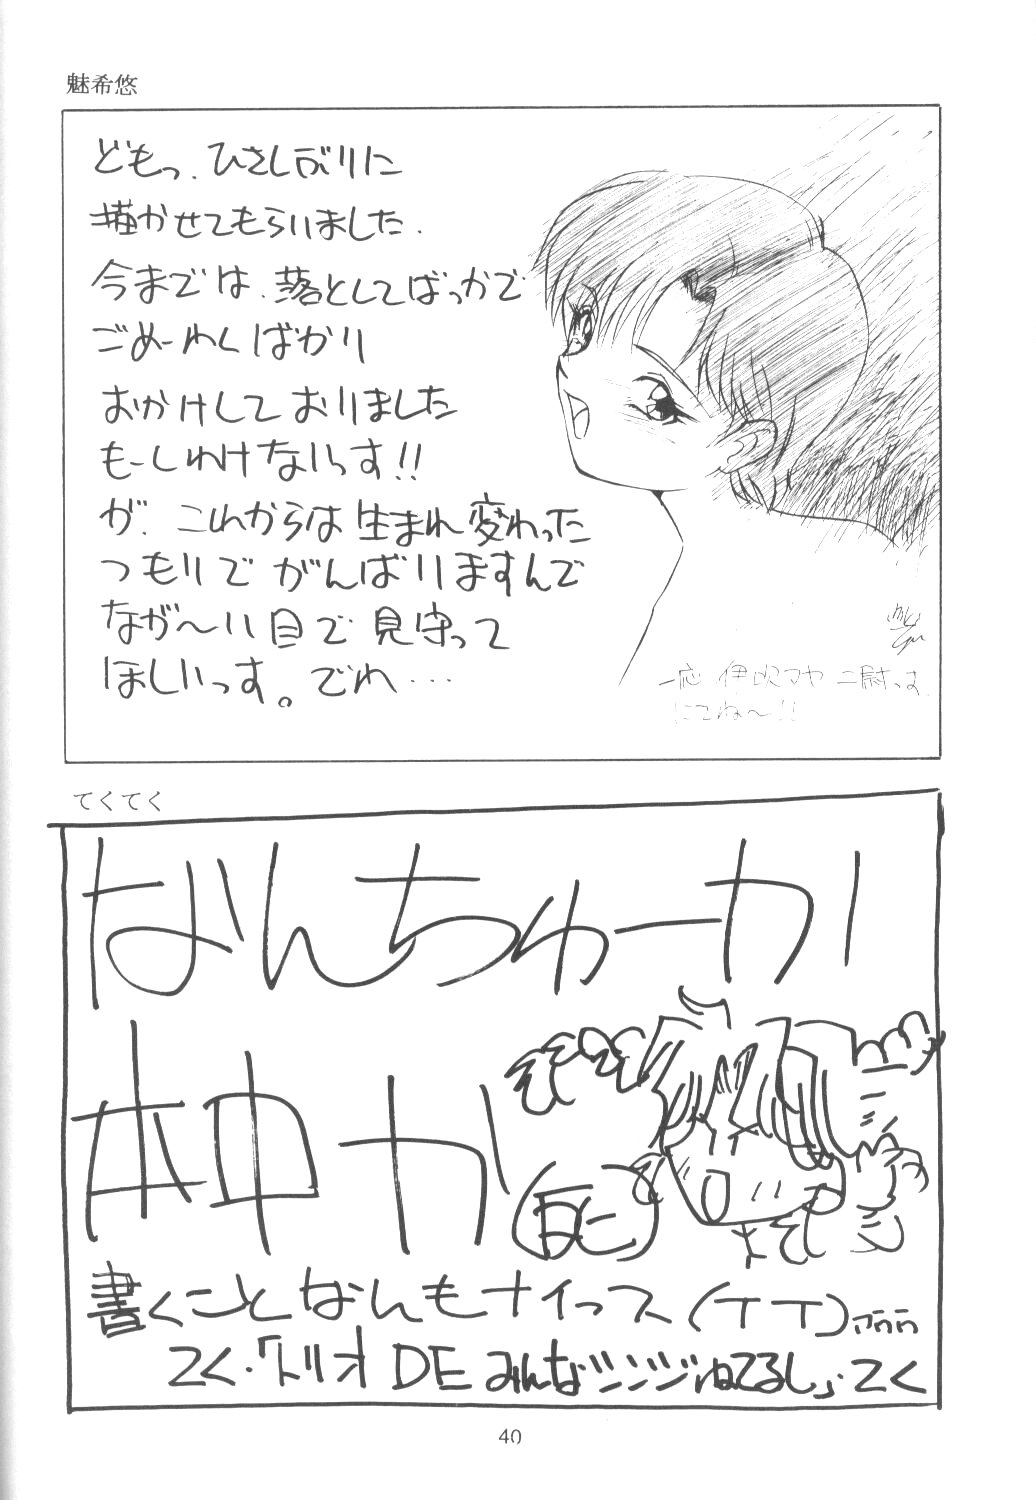 魅希悠
どもっ、ひさしぶりに
描かせてもらいました.
今までは、落としてばっかで
ごめーわくばかり
おかけしておりました
もーしわけないっす!!
が、これからは生まれ変わった
つもりでがんばりますんで
なが〜い目で見守って
ほしいっす。でわ…
一応 伊吹マヤ二尉っす.
にてね〜!!
てくてく
なんちゅーか
本中か
書くことなんもナイっス(TT)
てく・「トリオDEみんな
ねてるし」・てく
40